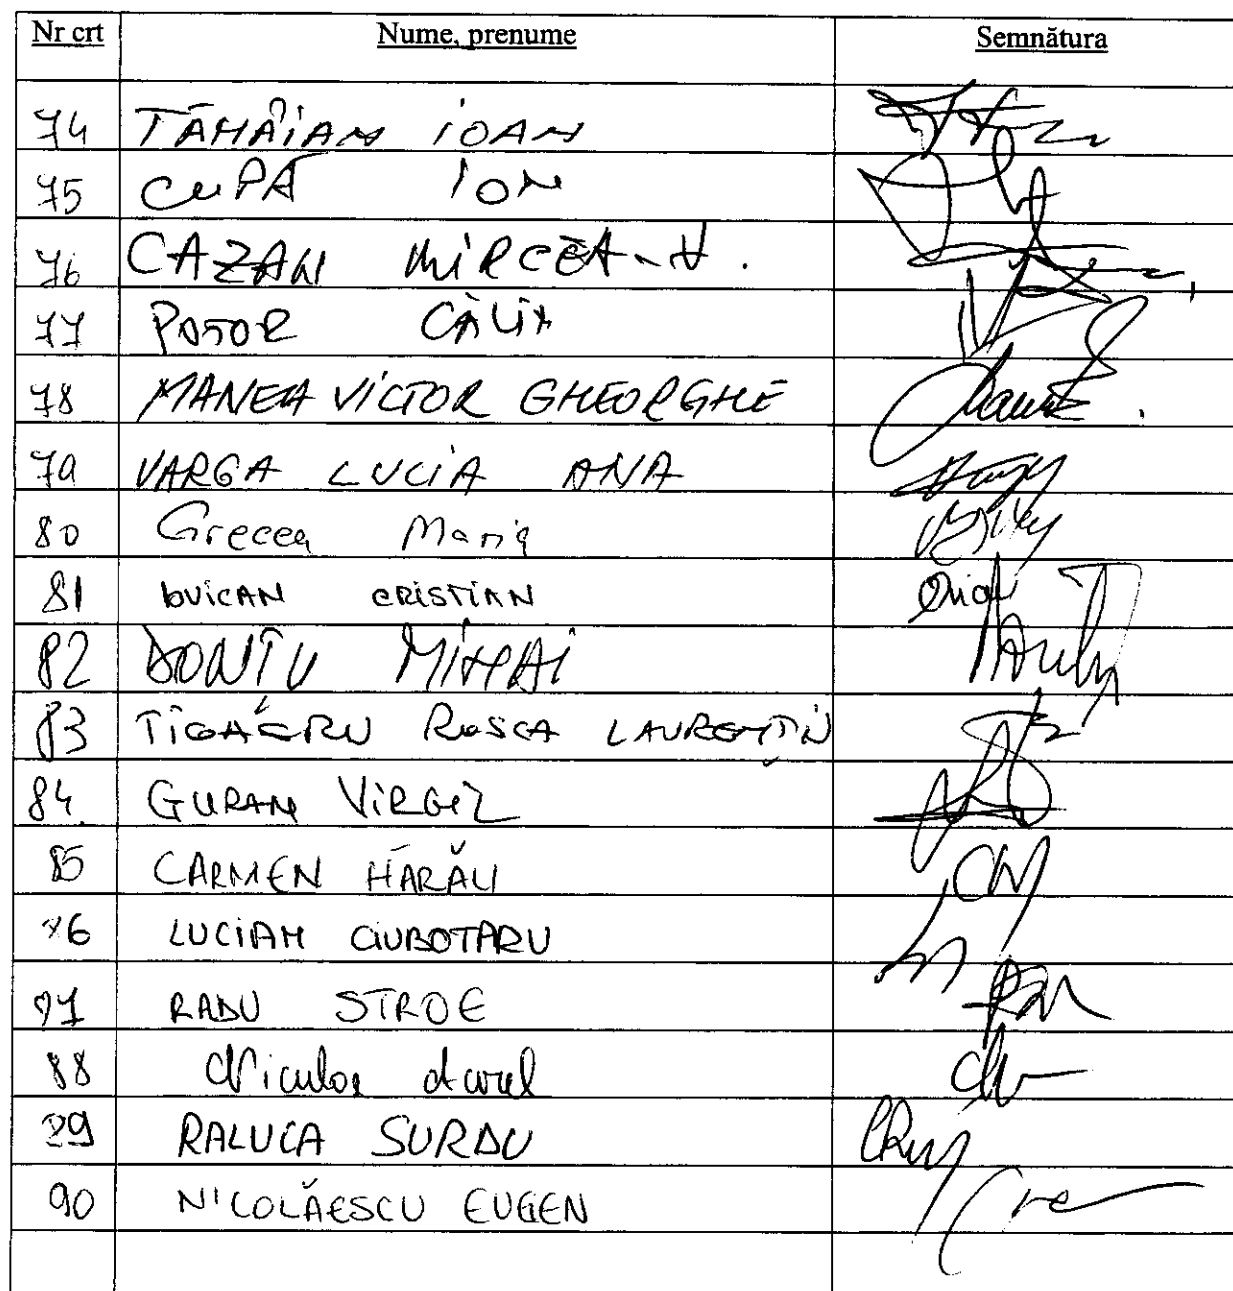 Nr crt Nume, prenume Semnătura
74 TĂMÂIAN IOAN
75 CUPĂ ION
76 CAZAN MIRCEA-V.
77 POTOR CĂLIN
78 MANEA VICTOR GHEORGHE
79 VARGA LUCIA ANA
80 Grecea Maria
81 BUICAN CRISTIAN
82 DONȚU MIHAI
83 ROȘCA LAURENȚIU
84. GURAN VIRGIL
85 CARMEN HĂRĂU
86 LUCIAN CIUBOTARU
87 RADU STROE
88 Niculae Aurel
89 RALUCA SURDU
90 NICOLĂESCU EUGEN